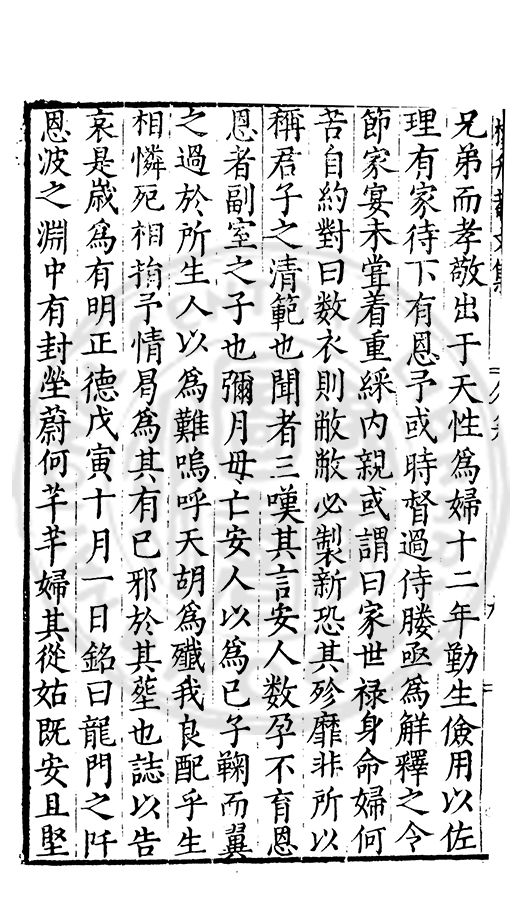 兄弟而孝敬出于天性爲婦十二年勤生儉用以佐
理有家待下有恩予或時督過侍媵亟爲解釋之令
節家宴未甞着重綵内親或謂曰家世禄身命婦何
苦自約對曰数衣則敝敝必製新恐其殄靡非所以
稱君子之清範也聞者三嘆其言安人数孕不育恩
恩者副室之子也彌月毋亡安人以爲已子鞠而翼
之過於所生人以爲難嗚呼天胡爲殲我良配乎生
相憐死相捐予情曷爲其有已邪於其塟也誌以告
哀是歳爲有明正德戊寅十月一日銘曰龍門之阡
恩波之淵中有封塋蔚何芊芊婦其從姑既安且堅